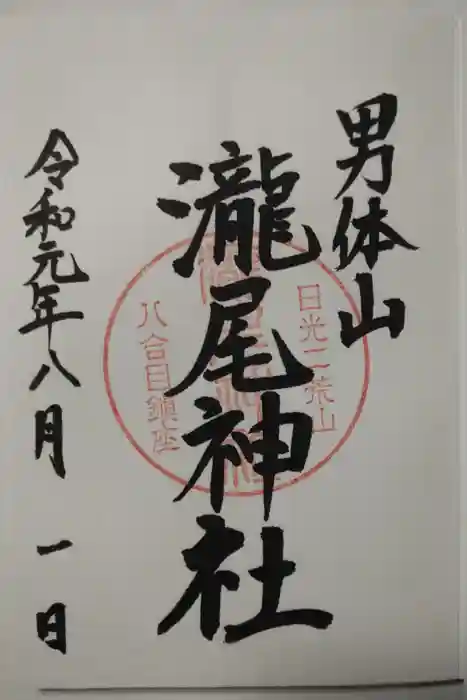 男体山
瀧尾神社
日光二荒山
八合目鎮座
令和元年八月一日